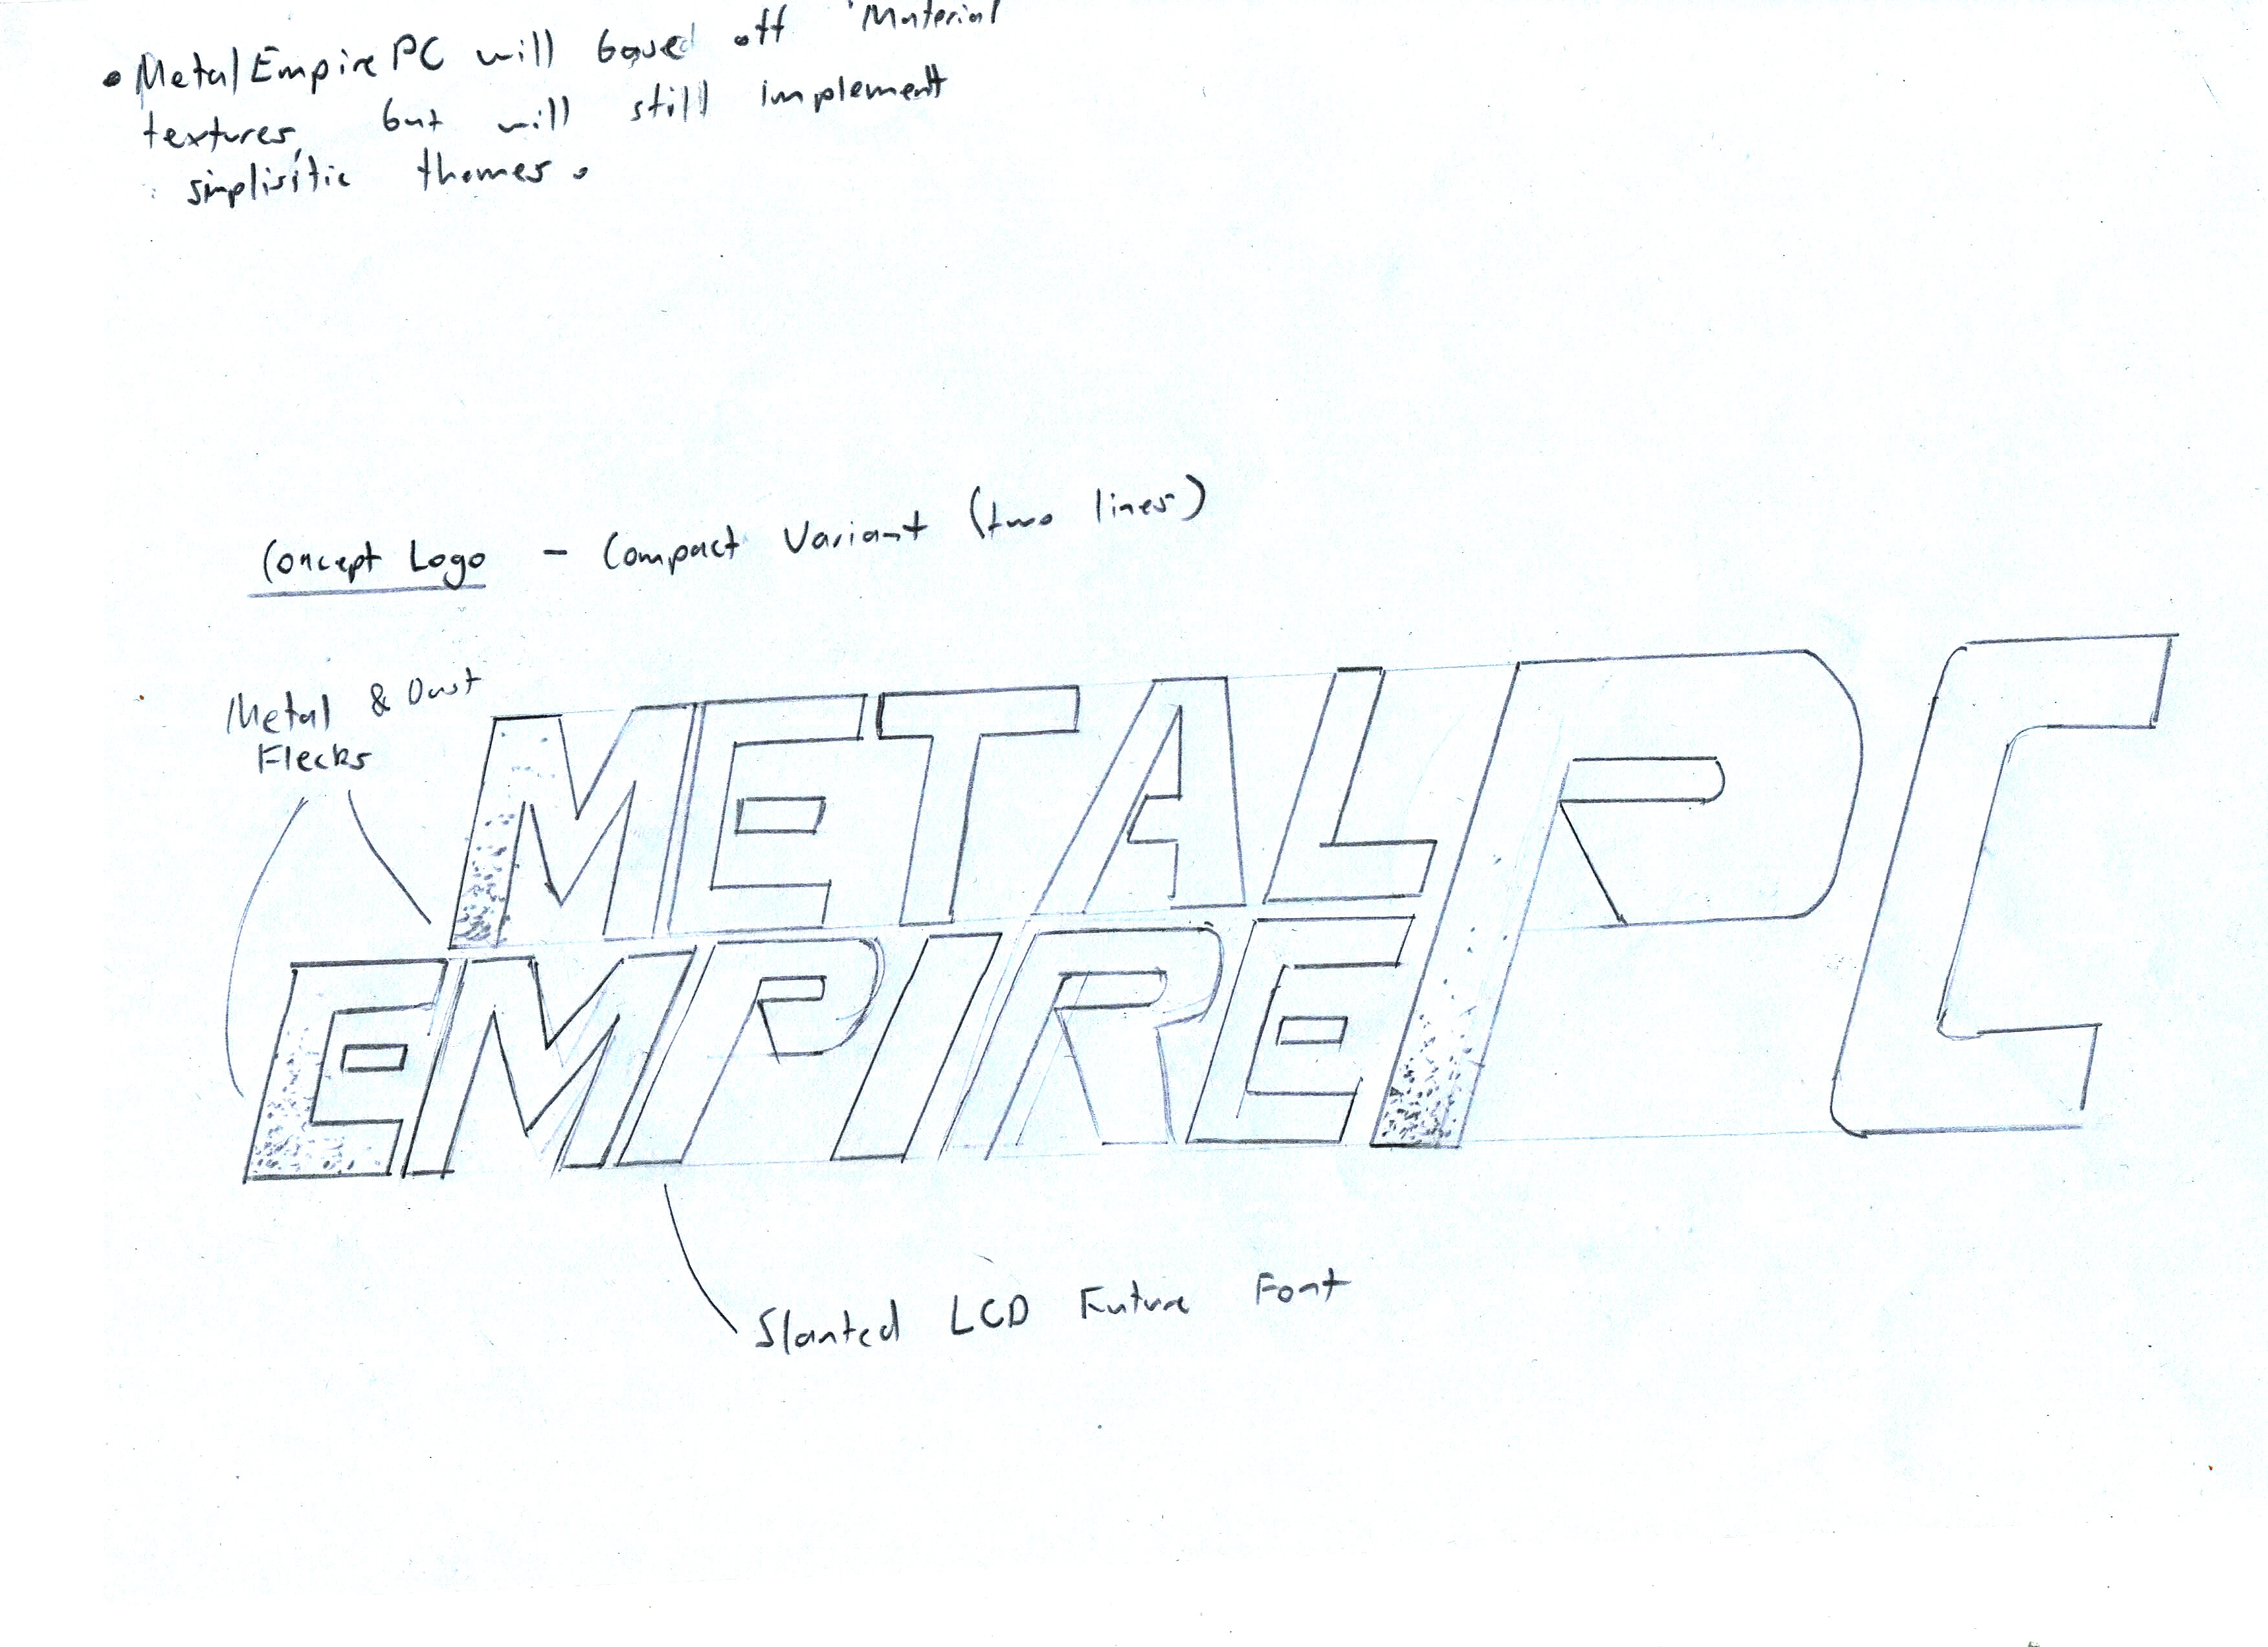 • MetalEmpirePC will based off 'Material
textures, but will still implement
simplisitic themes.
Concept Logo - Compact Variant (two lines)
Metal & Dust
Flecks
METAL PC
EMPIRE
Slanted LCD Future Font